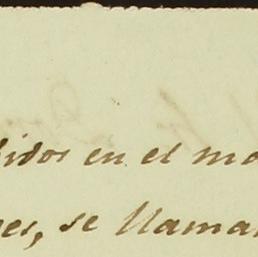 idos en el mo
es, se llama